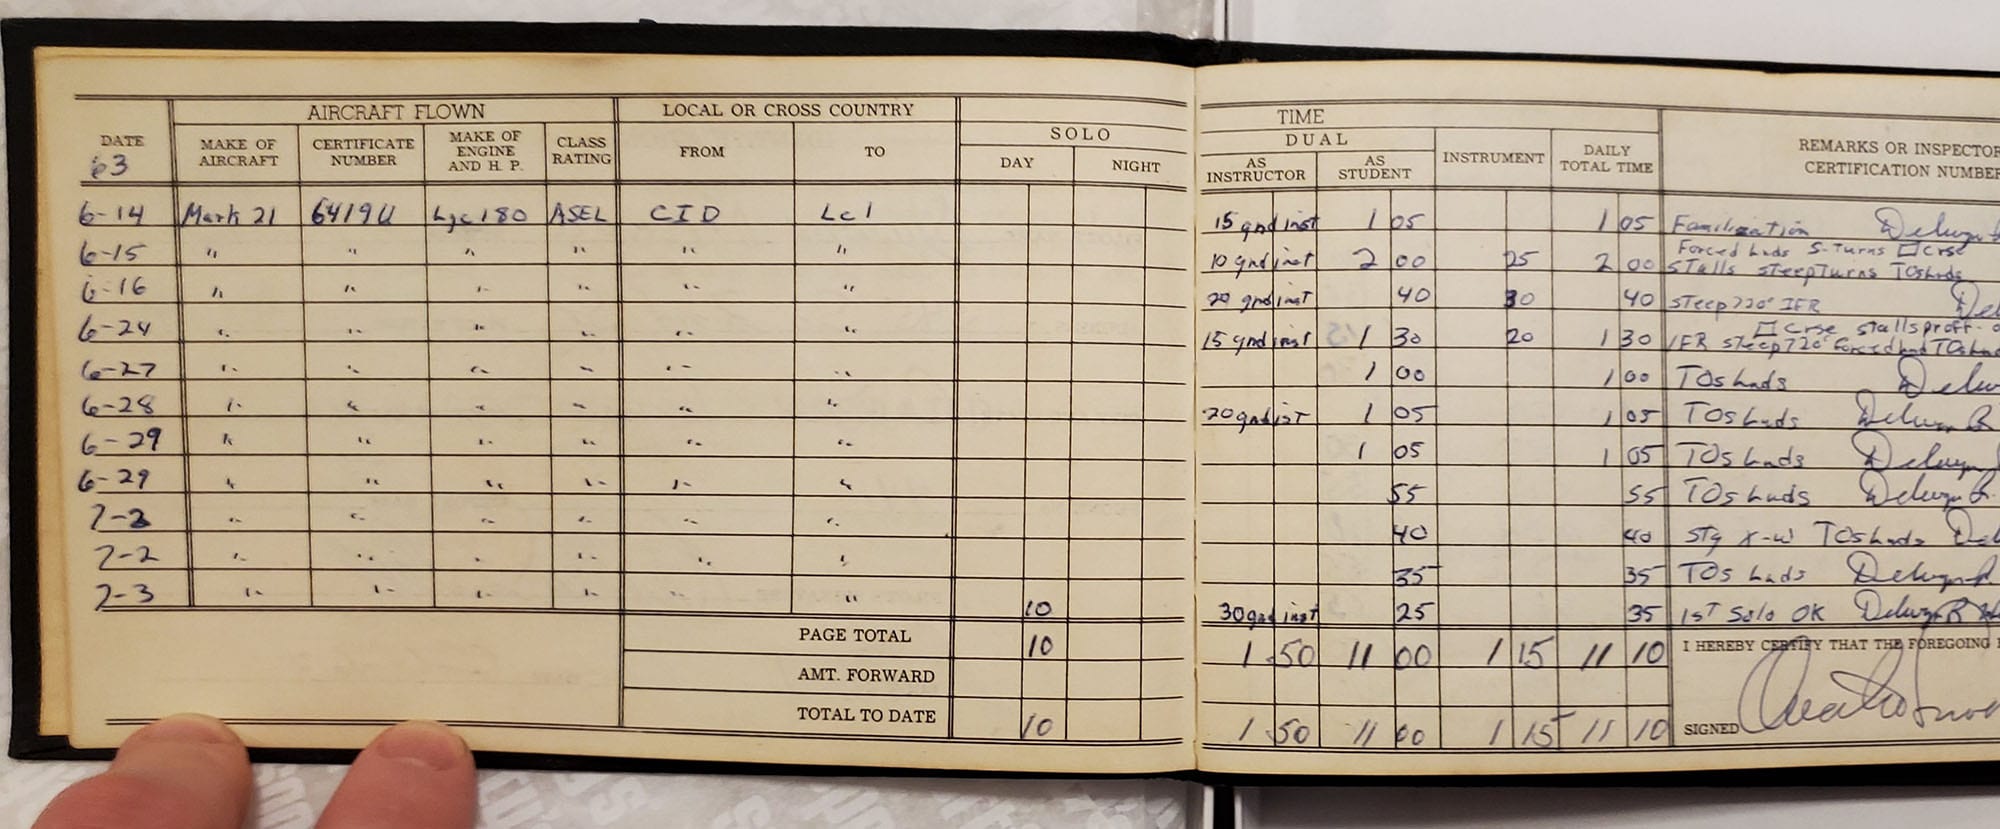 AIRCRAFT FLOWN LOCAL OR CROSS COUNTRY TIME
DATE MAKE OF AIRCRAFT CERTIFICATE NUMBER MAKE OF ENGINE AND H. P. CLASS RATING FROM TO SOLO DAY NIGHT DUAL AS INSTRUCTOR AS STUDENT INSTRUMENT DAILY TOTAL TIME REMARKS OR INSPECTOR CERTIFICATION NUMBER
63
6-14 Mark 21 6419U Lyc 180 ASEL CID Lcl 15 gnd inst 1 05 1 05 Familization
6-15 " " " " " " 10 gnd inst 2 00 25 2 00 Forced Lnds S-Turns □ Crse
Stalls steep Turns TOs Lnds
6-16 " " " " " " 20 gnd inst 40 30 40 steep 720° IFR
6-24 " " " " " " 15 gnd inst 1 30 20 1 30 □ Crse stalls proff-
IFR steep 720° forced Lnd TOs Lnd
6-27 " " " " " " 1 00 1 00 TOs Lnds
6-28 " " " " " " 20 gnd ist 1 05 1 05 TOs Lnds
6-29 " " " " " " 1 05 1 05 TOs Lnds
6-29 " " " " " " 55 55 TOs Lnds
7-2 " " " " " " 40 40 stg x-w TOs Lnds
7-2 " " " " " " 35 35 TOs Lnds
7-3 " " " " " " 10 30 gnd inst 25 35 1st Solo OK
PAGE TOTAL 10 1 50 11 00 1 15 11 10 I HEREBY CERTIFY THAT THE FOREGOING
AMT. FORWARD
TOTAL TO DATE 10 1 50 11 00 1 15 11 10 SIGNED